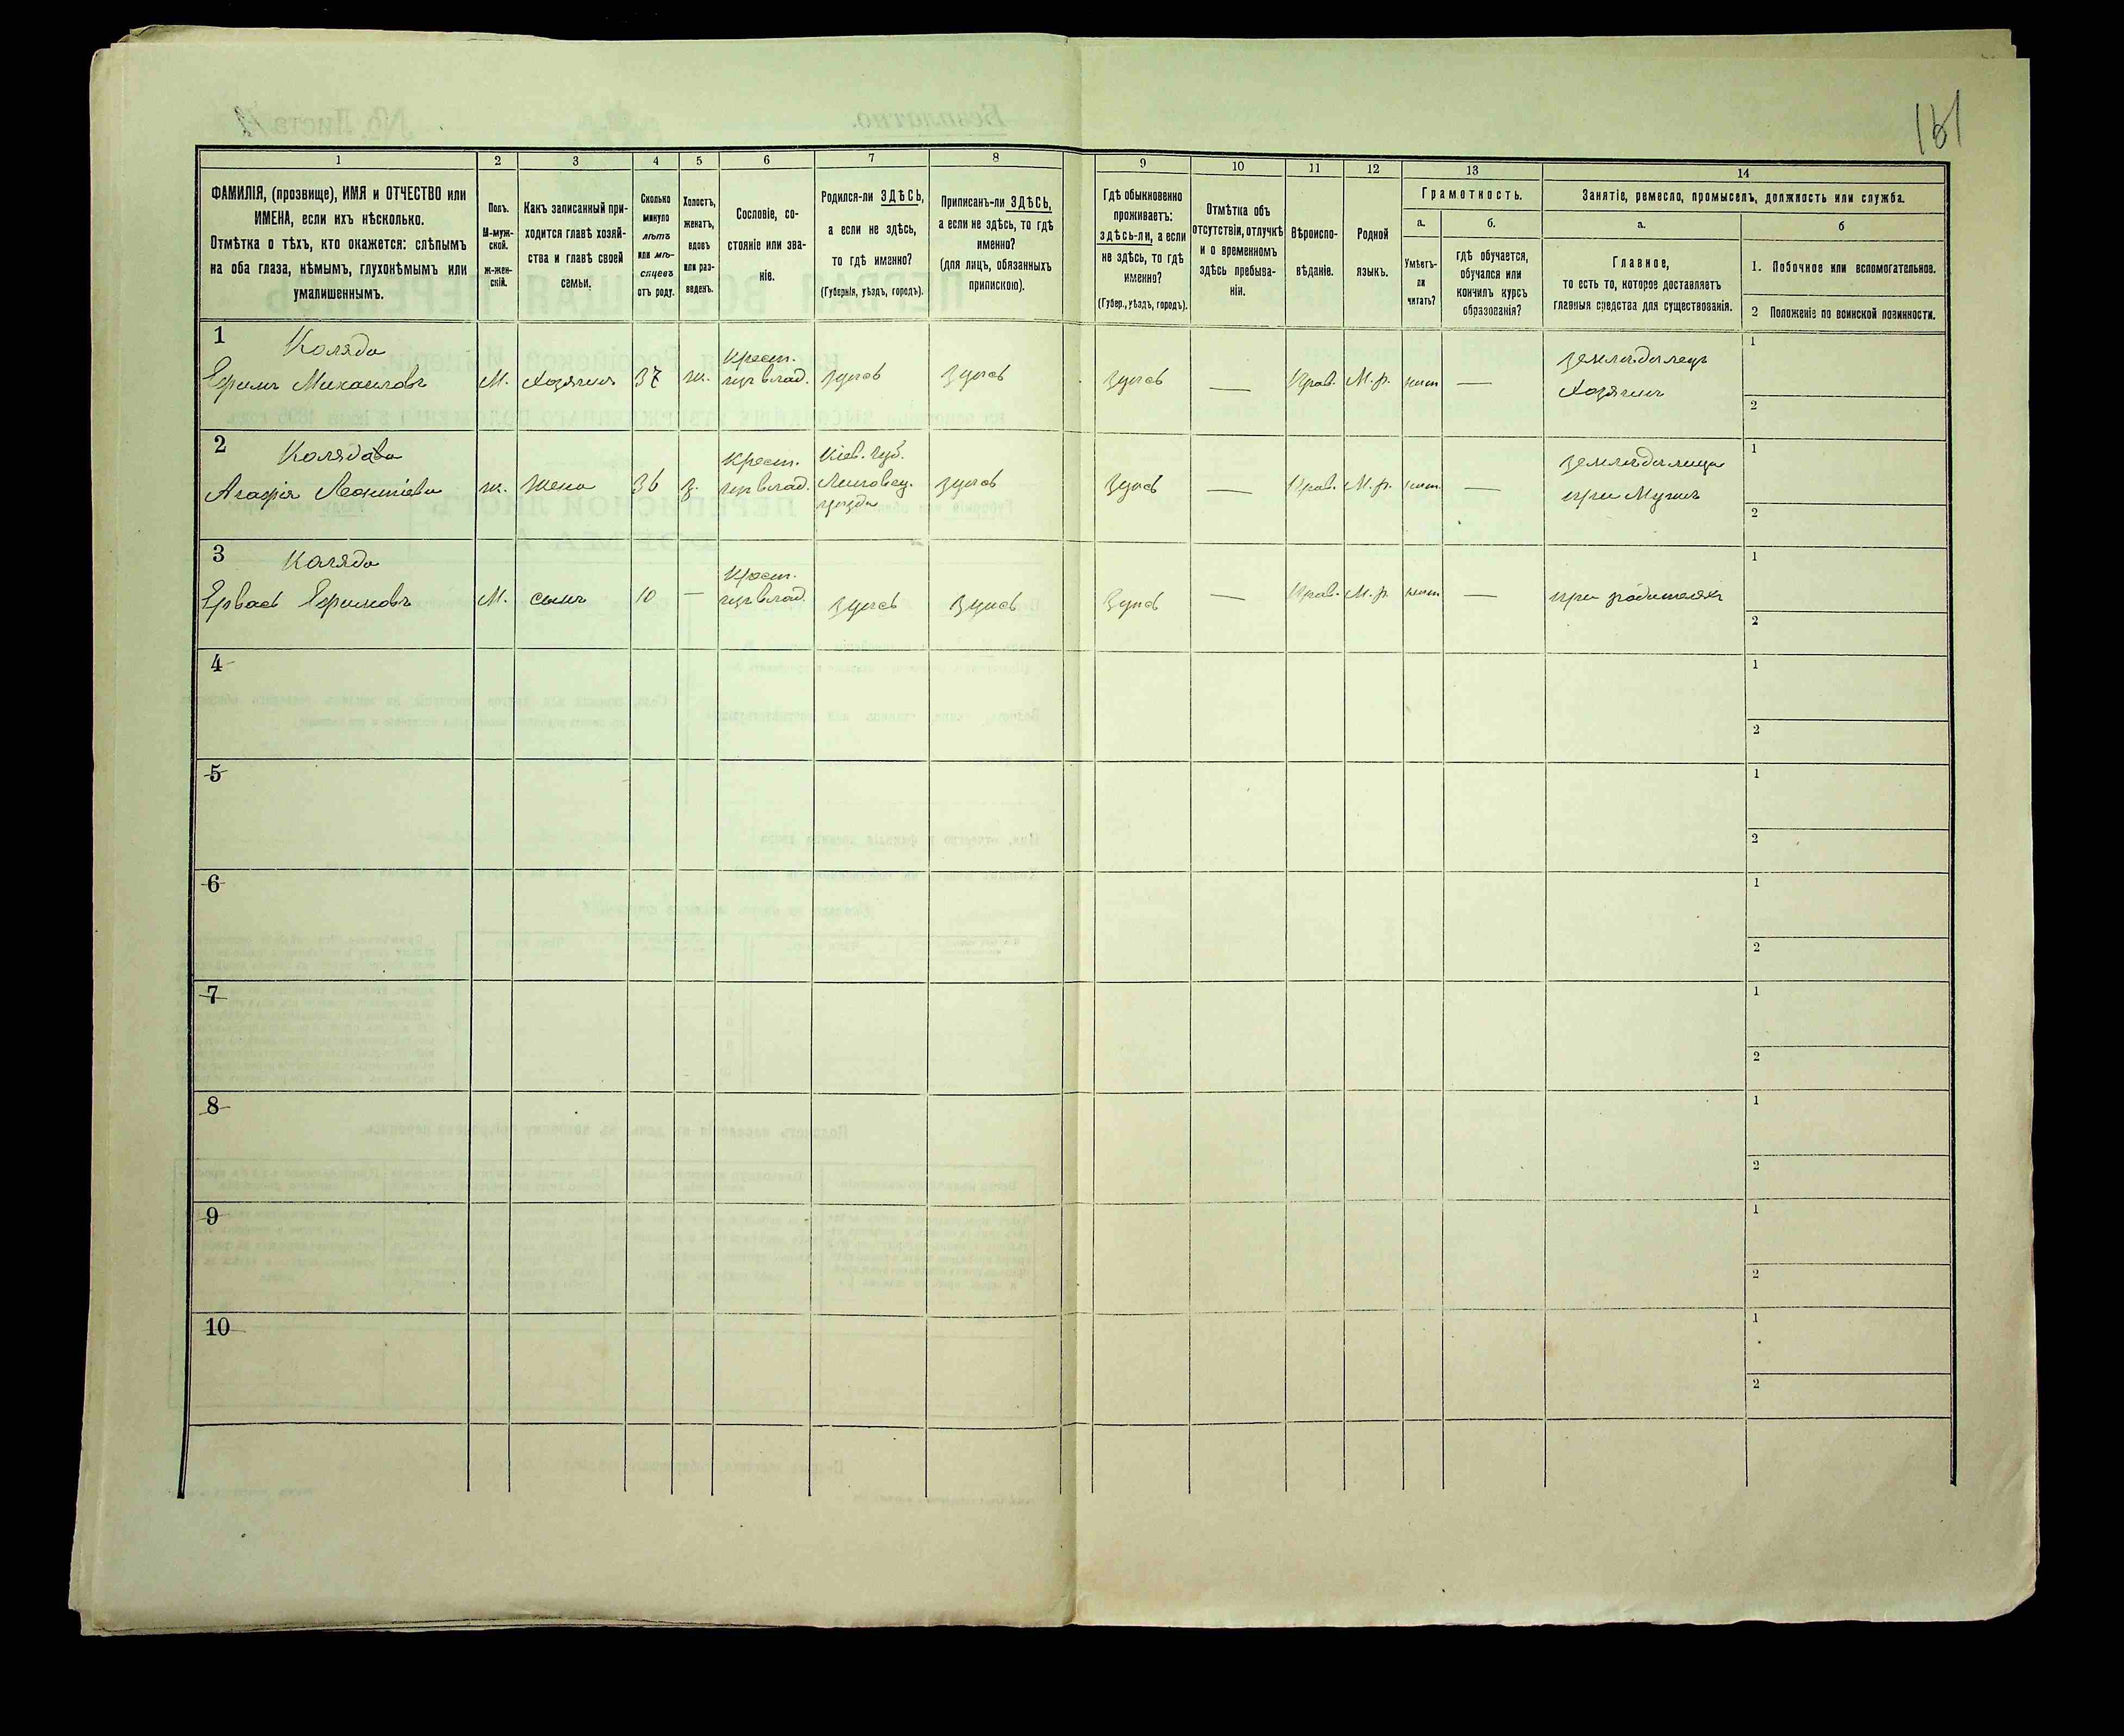 161
1
2
3
4
5
6
7
8
9
10
11
12
13
14
ФАМИЛІЯ, (прозвище), ИМЯ и ОТЧЕСТВО или
ИМЕНА, если ихъ нѣсколько.
Отмѣтка о тѣхъ, кто окажется: слѣпымъ
на оба глаза, нѣмымъ, глухонѣмымъ или
умалишеннымъ.
Полъ.
М-муж-
ской.
ж-жен-
скій.
Какъ записанный при-
ходится главѣ хозяй-
ства и главѣ своей
семьи.
Сколько
минуло
лѣтъ
или мѣ-
сяцевъ
отъ роду.
Холостъ,
женатъ,
вдовъ
или раз-
веденъ.
Сословіе, со-
стояніе или зва-
ніе.
Родился-ли ЗДѢСЬ,
а если не здѣсь,
то гдѣ именно?
(Губернія, уѣздъ, городъ).
Приписанъ-ли ЗДѢСЬ,
а если не здѣсь, то гдѣ
именно?
(для лицъ, обязанныхъ
припискою).
Гдѣ обыкновенно
проживаетъ:
здѣсь-ли, а если
не здѣсь, то гдѣ
именно?
(Губер., уѣздъ, городъ).
Отмѣтка объ
отсутствіи, отлучкѣ
и о временномъ
здѣсь пребыва-
ніи.
Вѣроиспо-
вѣданіе.
Родной
языкъ.
Грамотность.
а.
Умѣетъ-
ли
читать?
б.
гдѣ обучается,
обучался или
кончилъ курсъ
образованія?
Занятіе, ремесло, промыселъ, должность или служба.
а.
Главное,
то есть то, которое доставляетъ
главныя средства для существованія.
б
1. Побочное или вспомогательное.
2 Положеніе по воинской повинности.
1
Коляда
Ефимъ Михаиловъ
М.
Хозяинъ
37
ж.
Крест.
влад.
Здѣсь
Здѣсь
Здѣсь
—
Прав.
М. р.
нѣт
—
земледѣлецъ
Хозяинъ
1
2
2
Колядова
Агафія Леонтіева
ж.
Жена
36
з.
Крест.
влад.
Кіев. губ.
Липовец.
уѣзда
Здѣсь
Здѣсь
—
Прав.
М. р.
нѣт.
—
земледѣлица
при Мужѣ
1
2
3
Коляда
Ефимовъ
М.
сынъ
10
—
Крест.
влад.
Здѣсь
Здѣсь
Здѣсь
—
Прав.
М. р.
нѣт
—
при родителяхъ
1
2
4
1
2
5
1
2
6
1
2
7
1
2
8
1
2
9
1
2
10
1
2